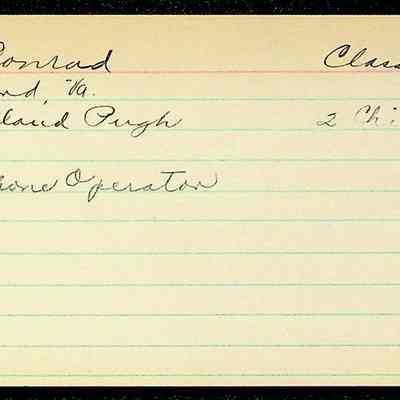 Conrad Class
nd, Va.
land Pugh 2 Chi
hone Operator